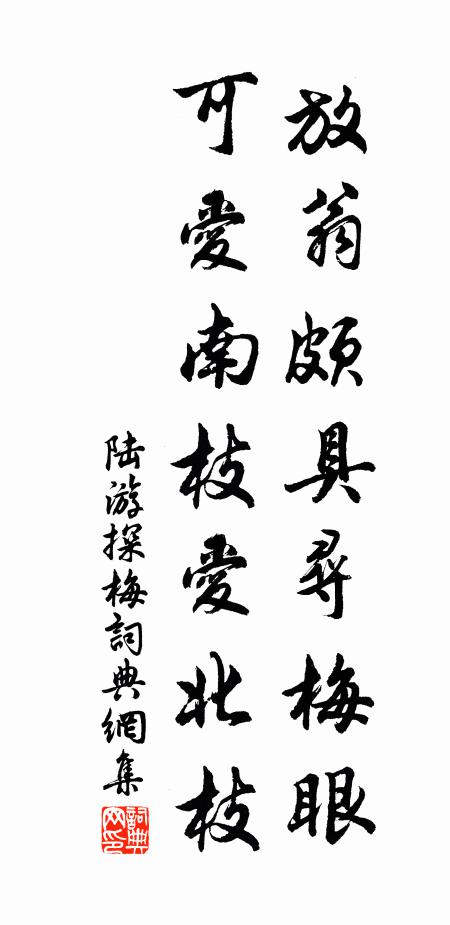 放翁頗具尋梅眼
可愛南枝愛北枝
陆游探梅詞典網集
詞典网印